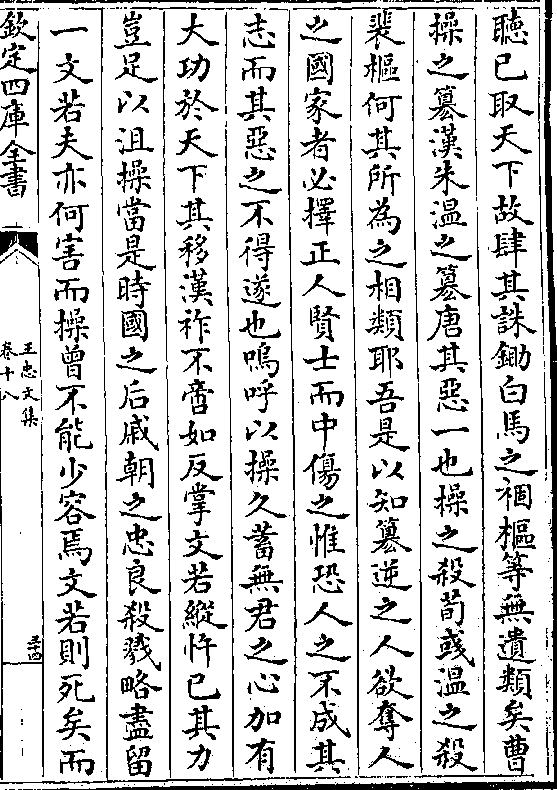 聽已取天下故肆其誅鋤白馬之禍樞等無遺類矣曹
操之篡漢朱温之篡唐其惡一也操之殺荀彧温之殺
裴樞何其所為之相類耶吾是以知篡逆之人欲奪人
之國家者必擇正人賢士而中傷之惟恐人之不成其
志而其惡之不得遂也嗚呼以操久蓄無君之心加有
大功於天下其移漢祚不啻如反掌文若縱忤已其力
豈足以沮操當是時國之后戚朝之忠良殺戮略盡留
一文若夫亦何害而操曾不能少容焉文若則死矣而
欽定四庫全書
王忠文集
卷十八
三十四